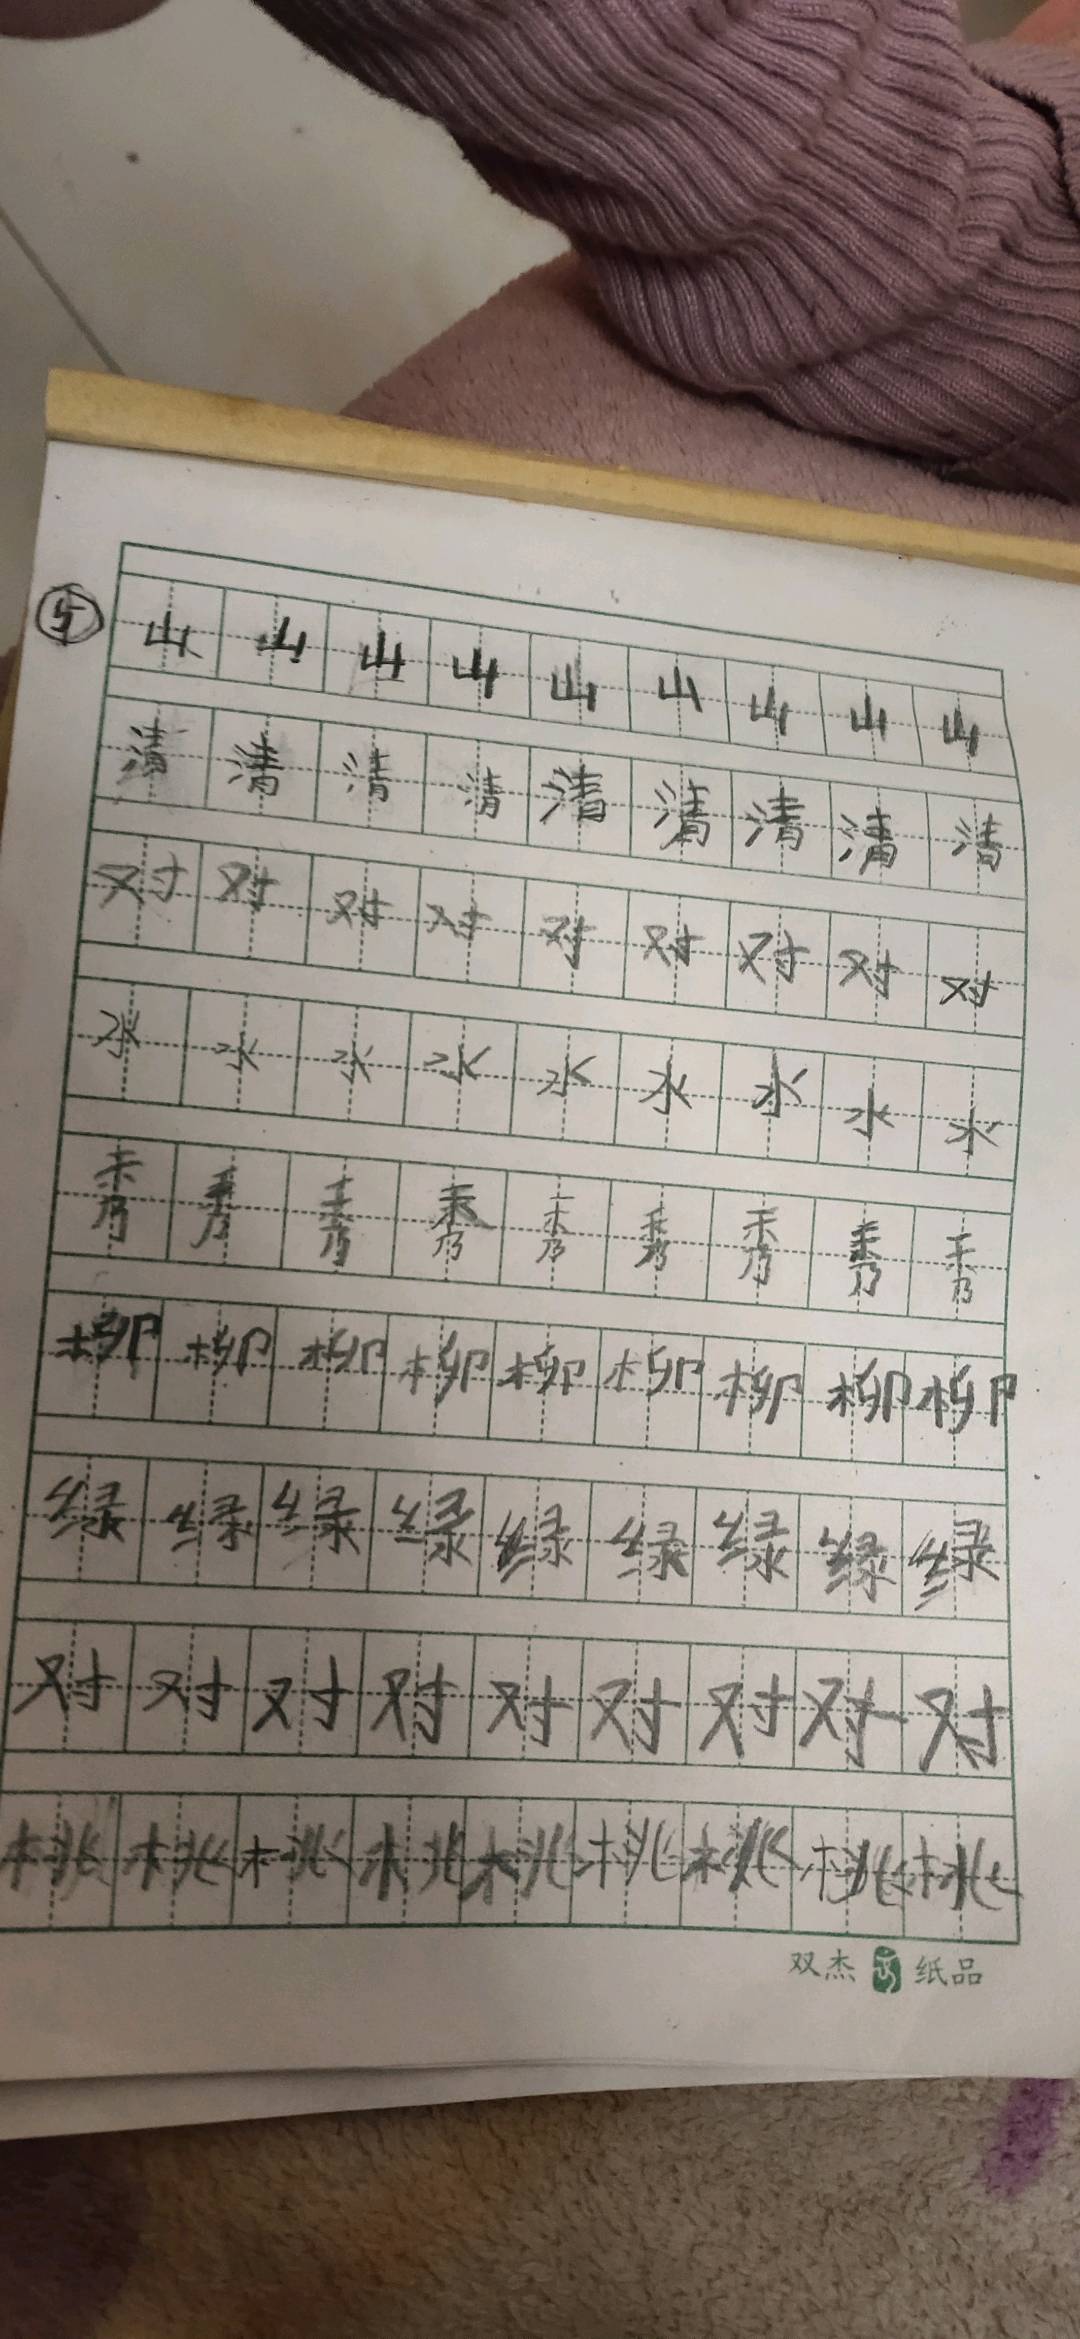 5
山山山山山山山山山
清清清清清清清清清
对对对对对对对对对
水水水水水水水水水
秀秀秀秀秀秀秀秀秀
柳柳柳柳柳柳柳柳柳
绿绿绿绿绿绿绿绿绿
对对对对对对对对对
桃桃桃桃桃桃桃桃桃
双杰 纸品